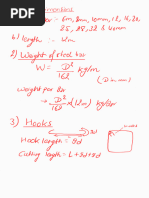 :- 6m, 8m, 10mm, 12, 16, 20,
25, 28, 32 & 40mm
b) length :- 12m
2) Weight of steel bar
W = D²/162 kg/m
(D in mm)
Weight per bar
⇒ D²/162 × (12m) kg/bar
3) Hooks
Hook length = 9d
Cutting length = L+9d+9d